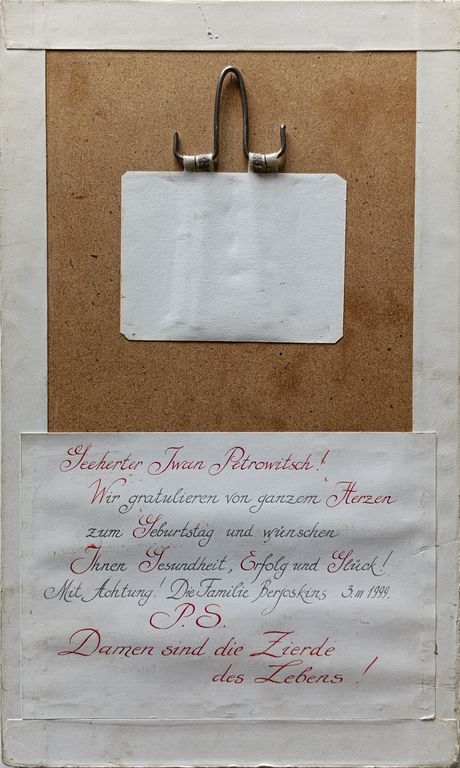 Geeherter Iwan Petrowitsch!
Wir gratulieren von ganzem Herzen
zum Geburtstag und wünschen
Ihnen Gesundheit, Erfolg und Glück!
Mit Achtung! Die Familie Berjoskins 3.III 1999.
P.S.
Damen sind die Zierde
des Lebens!